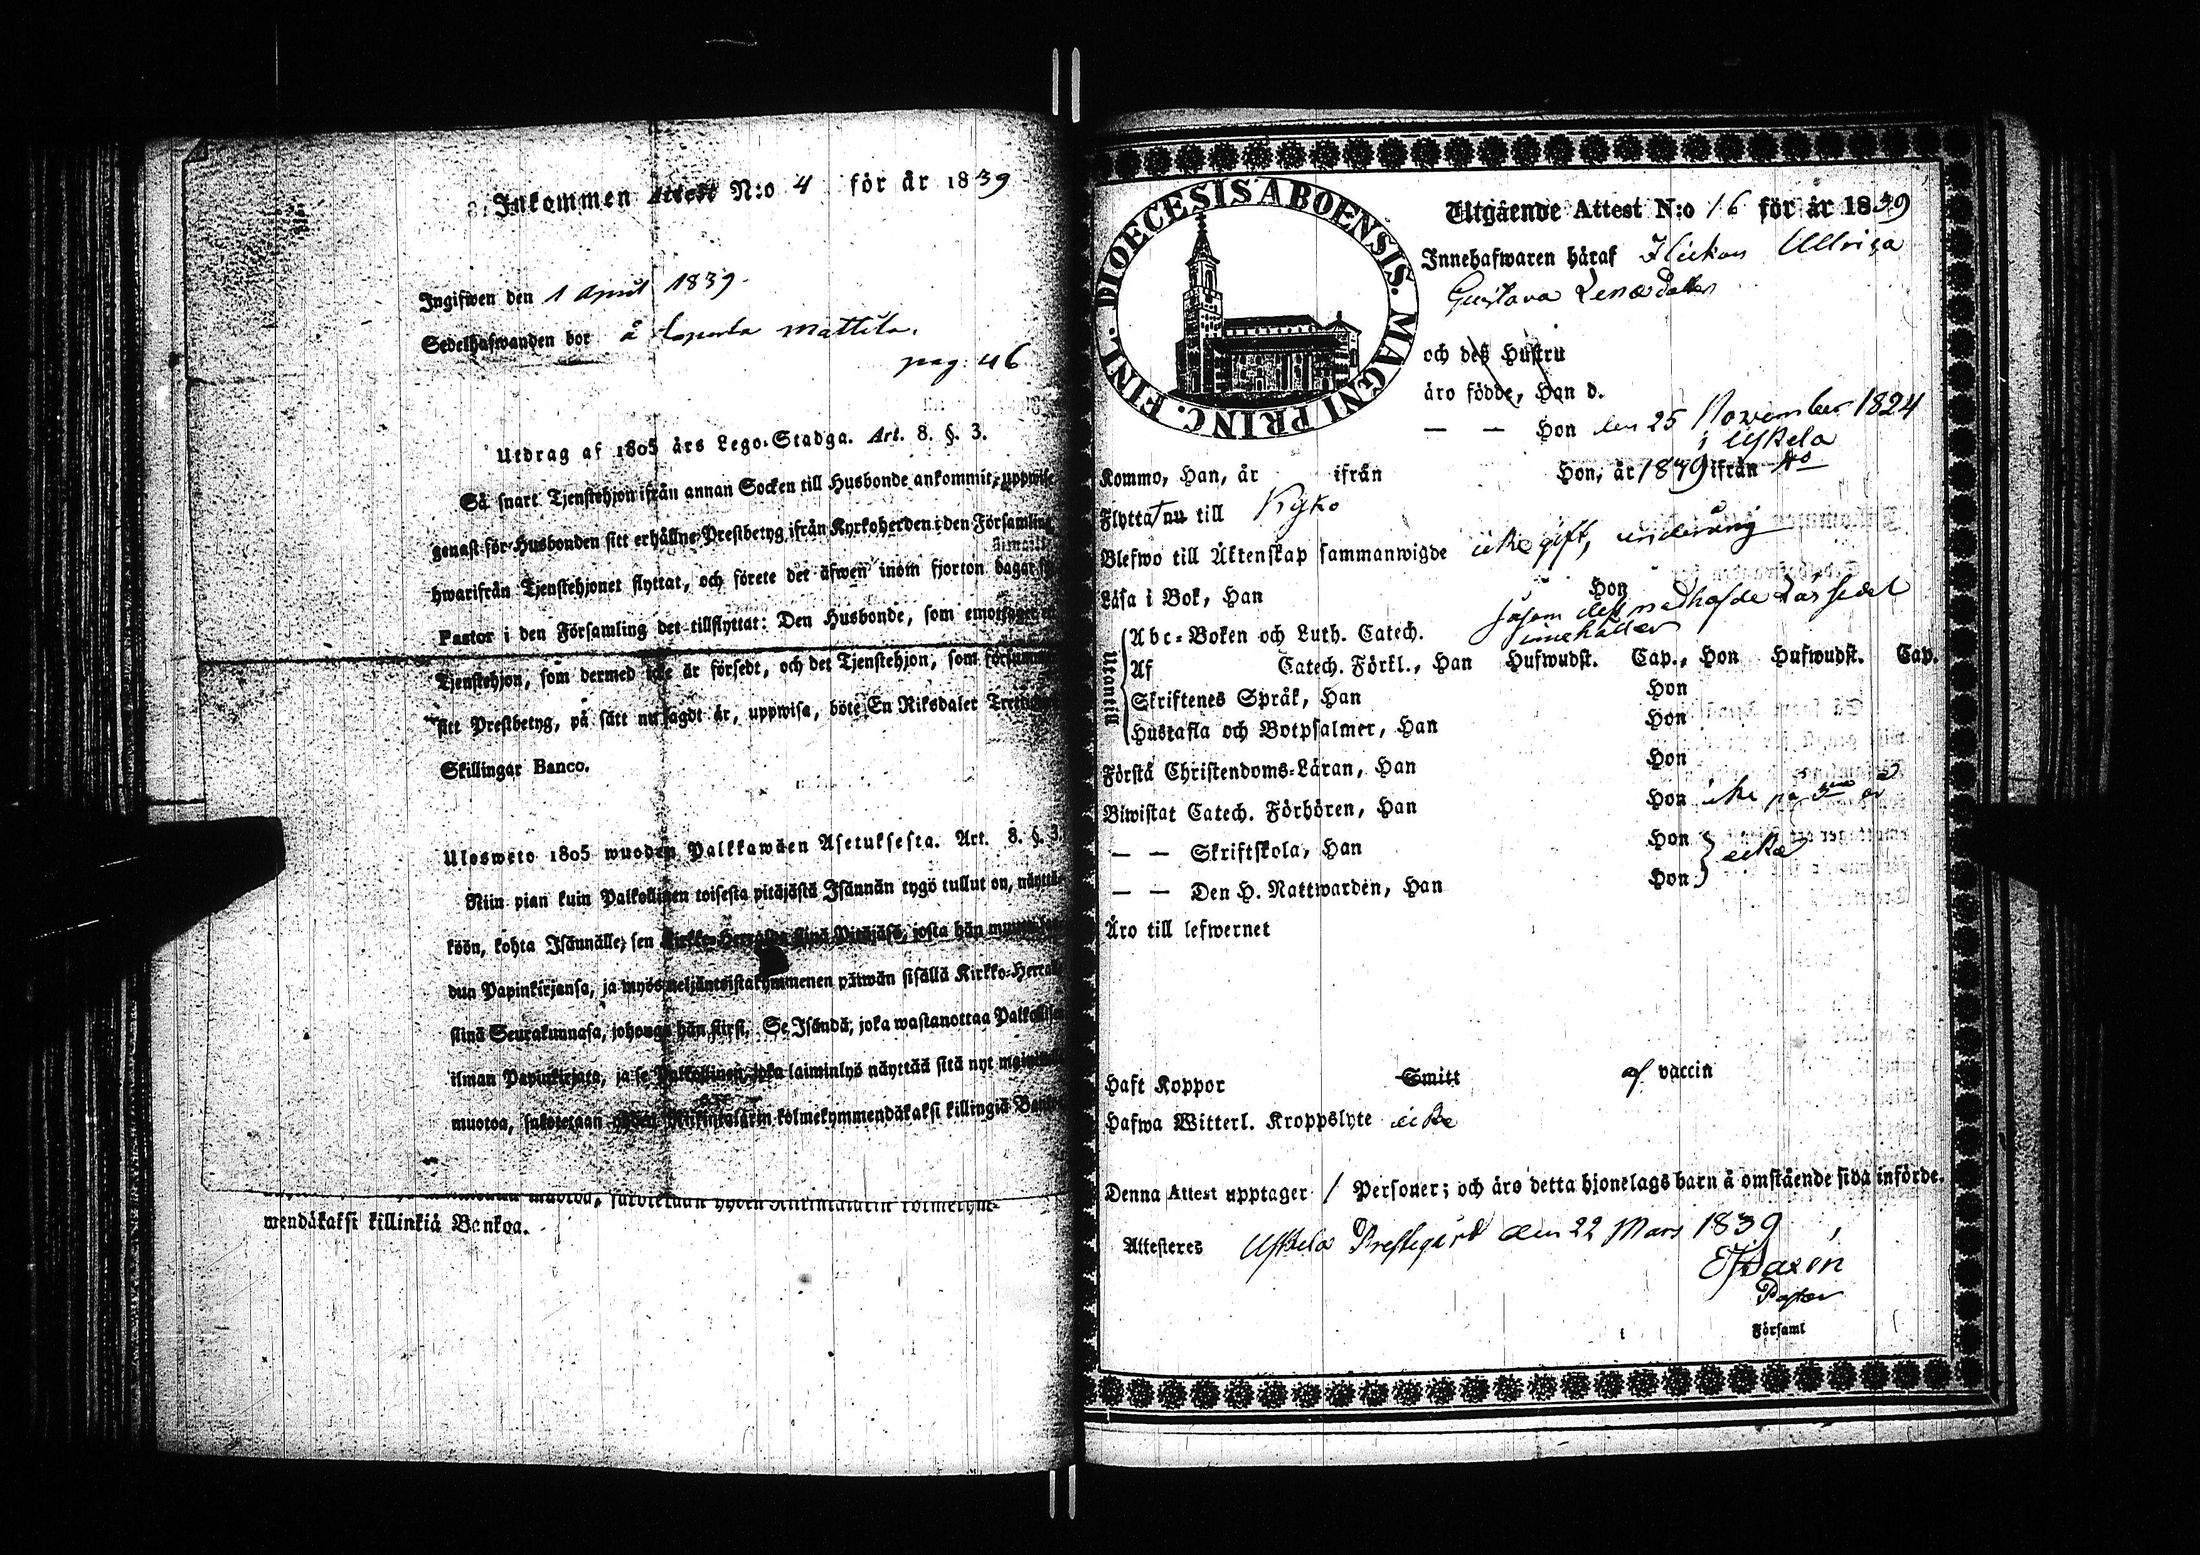 Inkommen Attest N:o 4 för år 1839
Ingifwen den 1 April 1839.
Sedelhafwanden bor å Mattila.
pag. 46
Utdrag af 1805 års Lego-Stadga. Art. 8. §. 3.
Så snart Tjenstehjon ifrån annan Socken till Husbonde ankommit, uppwise
genast för Husbonden sitt erhållne Prestbetyg ifrån Kyrkoherden i den Församling
hwarifrån Tjenstehjonet flyttat, och förete det äfwen inom fjorton dagar
Pastor i den Församling det tillflyttat: Den Husbonde, som emottager
Tjenstehjon, som dermed icke är försedt, och det Tjenstehjon, som försummar
sitt Prestbetyg, på sätt nu sagdt är, uppwisa, böte En Riksdaler Trettio
Skillingar Banco.
Ulosweto 1805 wuoden Palkkawäen Asetuksesta. Art. 8. §. 3.
Niin pian kuin Palkollinen toisesta pitäjästä Isännän tygö tullut on, näyttä-
köön, kohta Isännälle, sen Kirkko-Herralda siinä Pitäjäsä, josta hän
dun Papinkirjansa, ja myös neljäntoistakymmenen päiwän sisällä Kirkko-Herralle
siinä Seurakunnasa, johonga hän siirsi. Se Isändä, joka wastanottaa Palkollisen
ilman Papinkirjata, ja se Palkollinen, joka laiminlyö näyttää sitä nyt
muotoa, sakotetaan yhden Riksintalarin kolmekymmendäkaksi killingiä
muotoa, sakotetaan yhden Riksintalarin kolmekym-
mendäkaksi killinkiä Bankoa.
DIOECESIS ABOENSIS. MAGNI PRINC. FINL.
Utgående Attest N:o 16 för år 1839
Innehafwaren häraf Flickan Ullrica
Gustava Lenæ Dotter
och deß Hustru
äro födde, Han d.
— — Hon den 25 November 1824
i Uskela
Kommo, Han, år ifrån Hon, år 1839 ifrån
Flytta nu till Kisko
Blefwo till Äktenskap sammanwigde icke gift, underårig
Läsa i Bok, Han Hon
såsom dess medhafde Läs sedel
innehåller
Utantill
Abc-Boken och Luth. Catech.
Af Catech. Förkl., Han Hufwudst. Cap., Hon Hufwudst. Cap.
Skriftenes Språk, Han Hon
Hustafla och Botpsalmer, Han Hon
Förstå Christendoms-Läran, Han Hon
Biwistat Catech. Förhören, Han Hon icke på år
— — Skriftskola, Han Hon
icke
— — Den H. Nattwarden, Han Hon
Äro till lefwernet
Haft Koppor Smitt af vaccin
Hafwa Witterl. Kroppslyte icke
Denna Attest upptager 1 Personer; och äro detta hjonelags barn å omstående sida införde.
Attesteres Uskela Prestegård den 22 Mars 1839
Pastor
Församl